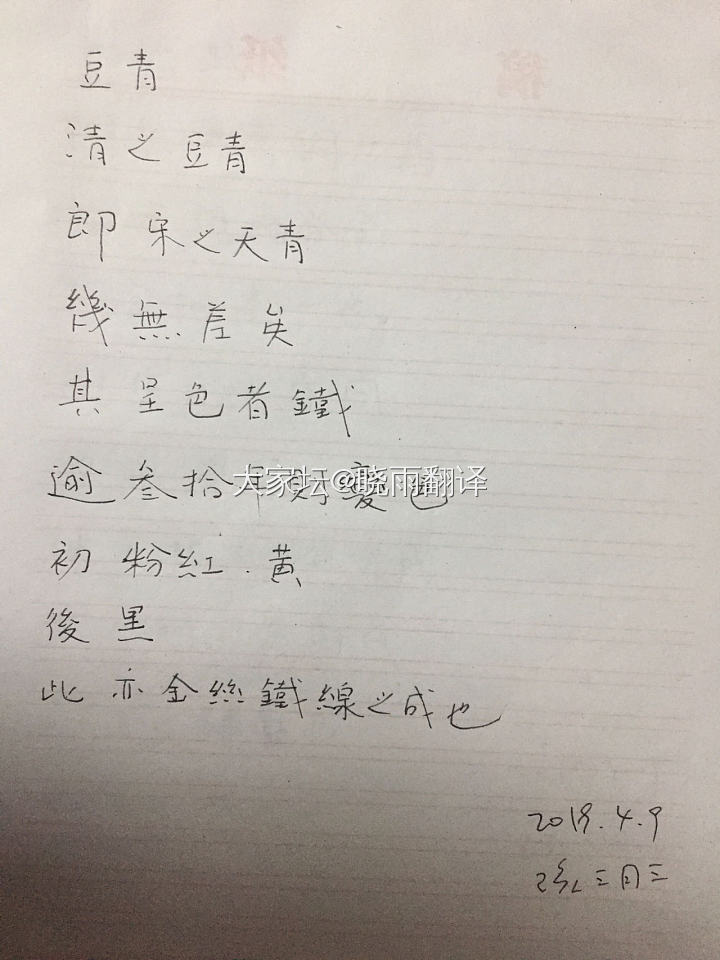 豆青
清之豆青
即宋之天青
幾無差矣
其呈色者鐵
逾叁拾年則變色
大家坛@晓雨翻译
初粉紅.黄
後黑
此亦金絲鐵線之成也
2019.4.9
三月三